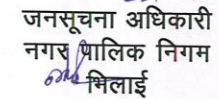 जनसूचना अधिकारी
नगर पालिक निगम
भिलाई